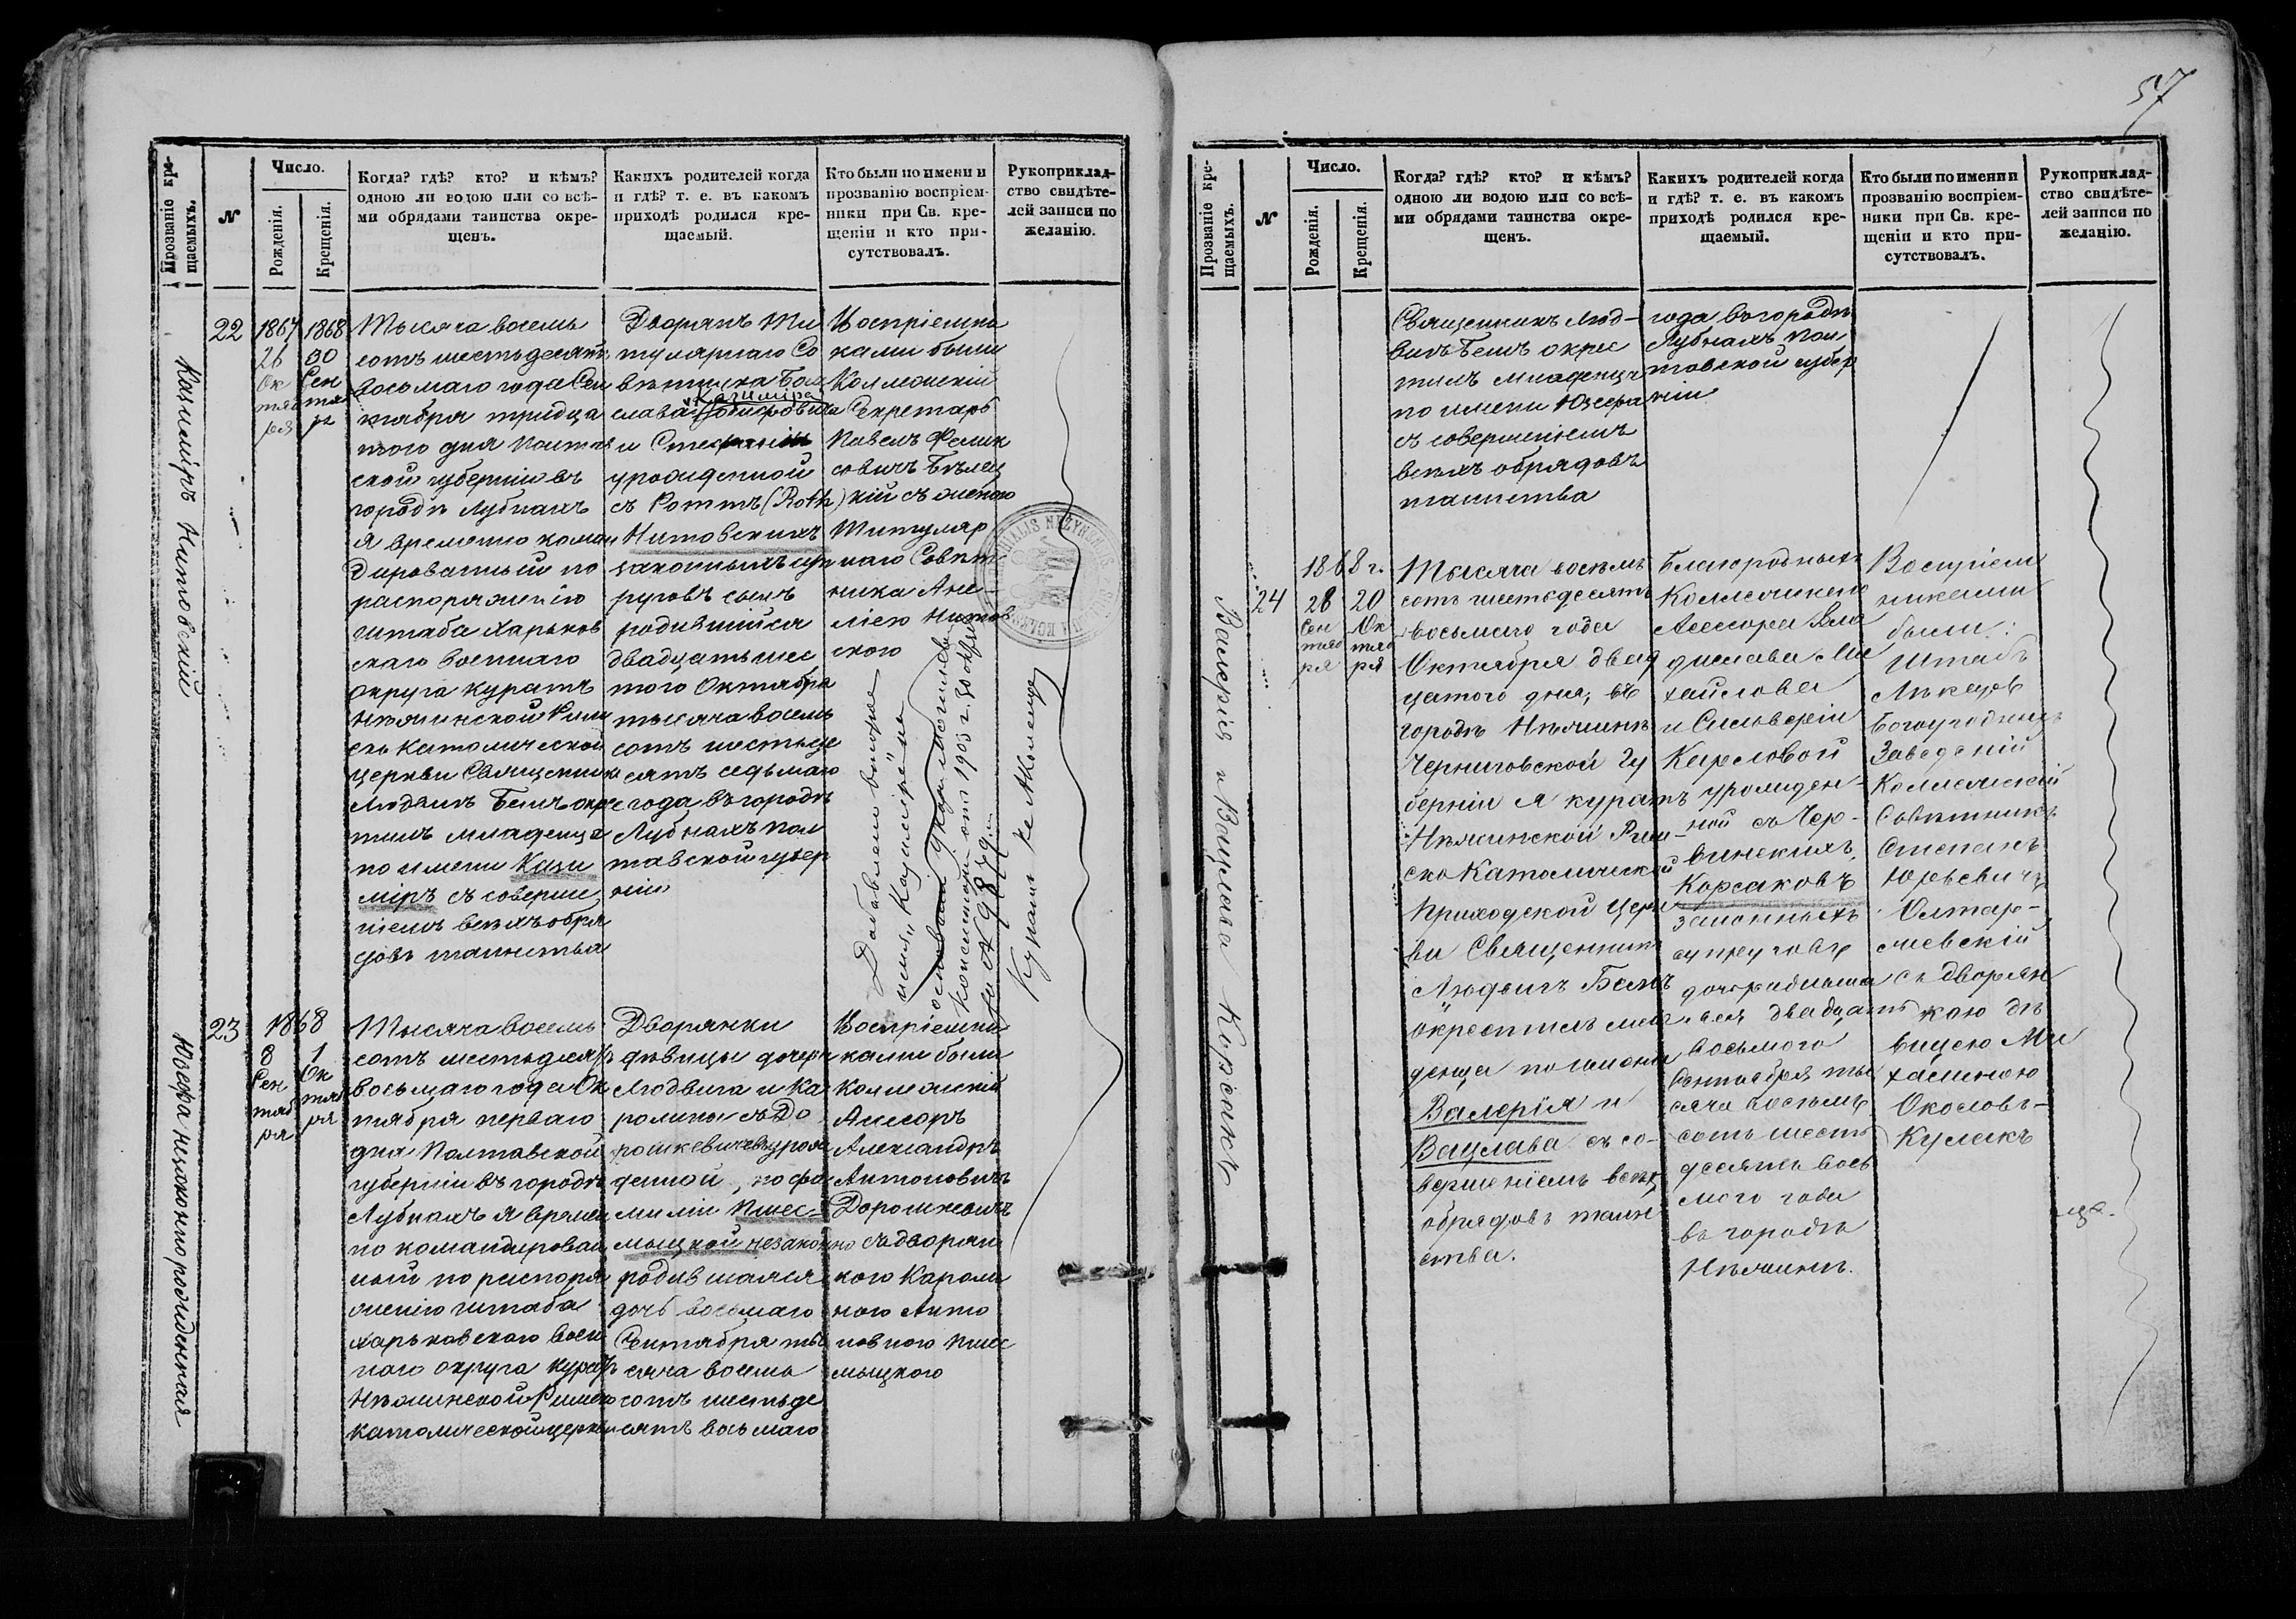 57
Прозваніе кре-
щаемыхъ.
№
Число.
Рожденія.
Крещенія.
Когда? гдѣ? кто? и кѣмъ?
одною ли водою или со всѣ-
ми обрядами таинства окре-
щенъ.
Какихъ родителей когда
и гдѣ? т. е. въ какомъ
приходѣ родился кре-
щаемый.
Кто были по имени и
прозванію воспріем-
ники при Св. кре-
щеніи и кто при-
сутствовалъ.
Рукоприклад-
ство свидѣте-
лей записи по
желанію.
Казиміръ Нитовскій
22
1867
26
Ок
тяб
ря
1868
30
Сен
тяб
ря
Тысяча восемь
сотъ шестьдесятъ
восьмаго года Сен
тября тридца
таго дня Полтав
ской губерніи въ
городѣ Лубнахъ
я временно коман
дированный по
распоряженію
штаба Харьков
скаго военнаго
округа куратъ
Нѣжинской Рим
ско Католической
церкви Священникъ
Людвигъ Бемъ окре
стилъ младенца
по имени Кази
міръ съ соверше
ніемъ всѣхъ обря
довъ таинства
Дворянъ Ти
тулярнаго Со
вѣтника Боле
Казиміра
слава
и Стефаніи
урожденной
съ Роттъ (Roth)
Нитовскихъ
законныхъ суп
руговъ сынъ
родившійся
двадцать шес
таго Октября
тысяча восемь
сотъ шестьде
сятъ седьмаго
года въ городѣ
Лубнахъ Пол
тавской губер
ніи
Воспріемни
ками были
Коллежскій
Секретарь
Павелъ Фелик
совичъ Бѣлец
кій съ женою
Титуляр
наго Совѣт
ника Ане
ліею Нитов
скою
Добавленіе второе
имя „Казиміръ" на
основаніи указа Могилев.
Консисторіи отъ 1903 г. 30 окт
за №
Куратъ
Юзефа незаконно рожденная
23
1868
8
Сен
тяб
ря
1
Ок
тяб
ря
Тысяча восемь
сотъ шестьдесятъ
восьмаго года Ок
тября перваго
дня Полтавской
губерніи въ городѣ
Лубнахъ я времен
но командирован
ный по распоря
женію штаба
Харьковскаго воен
наго округа куратъ
Нѣжинской Римско
католической церкви
Дворянки
дѣвицы дочери
Людвига и Ка
ролины съ До
рошкевичевъ урож
денной, по фа
миліи Пшес-
мыцкой незаконно
родившаяся
дочь восьмаго
Сентября ты
сяча восемь
сотъ шестьде
сятъ восьмаго
Воспріемни
ками были
Коллежскій
Ассесоръ
Александръ
Антоновичъ
Дорошкевичъ
съ дворян
кою Кароли
ною Анто
новною Пшес
мыцкою
Прозваніе кре-
щаемыхъ.
№
Число.
Рожденія.
Крещенія.
Когда? гдѣ? кто? и кѣмъ?
одною ли водою или со всѣ-
ми обрядами таинства окре-
щенъ.
Какихъ родителей когда
и гдѣ? т. е. въ какомъ
приходѣ родился кре-
щаемый.
Кто были по имени и
прозванію воспріем-
ники при Св. кре-
щеніи и кто при-
сутствовалъ.
Рукоприклад-
ство свидѣте-
лей записи по
желанію.
Священникъ Люд-
вигъ Бемъ окрес
тилъ младенца
по имени Юзефа
съ совершеніемъ
всѣхъ обрядовъ
таинства
года въ городѣ
Лубнахъ Пол
тавской губер
ніи
Валерія и Вацлава Корсакъ
24
1868 г.
28
Сен
тяб
ря
20
Ок
тяб
ря
Тысяча восемь
сотъ шестьдесятъ
восьмаго года
Октября двад
цатого дня, въ
городѣ Нѣжинѣ
Черниговской Гу
берніи я куратъ
Нѣжинской Рим-
ско Католической
Приходской Церк
ви Священникъ
Людвигъ Бемъ
окрестилъ мла
денца по имени
Валерія и
Вацлава съ со-
вершеніемъ всѣхъ
обрядовъ таин
ства.
Благородныхъ
Коллежскаго
Асессора Вла
дислава Ми
хайлова
и Сильверіи
Карловой
урожден-
ной съ Чер-
винскихъ,
Корсаковъ
законныхъ
супруговъ
дочь родивша
яся двадцать
восьмого
Сентября ты
сяча восемь
сотъ шесть
десятъ вось
мого года
въ городѣ
Нѣжинѣ.
Воспріем
никами
были:
Штабъ
Лѣкарь
Богоугодныхъ
Заведеній
Коллежскій
Совѣтникъ
Степанъ
Юрьевичъ
Олтар-
жевскій
съ Дворян
кою дѣ
вицею Ми
халиною
Околовъ-
Кулакъ